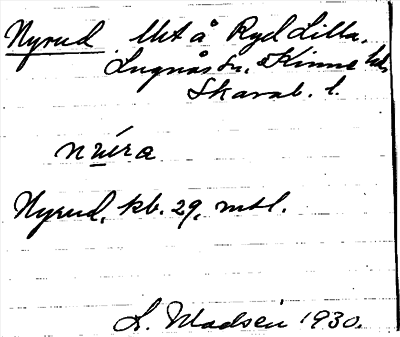 Nyrud Utå Ryd Lilla,
Lugnås sn, Kinne hd,
Skarab. l.
núra
Nyrud, kb. 29, mtl.
L. Madsén 1930.